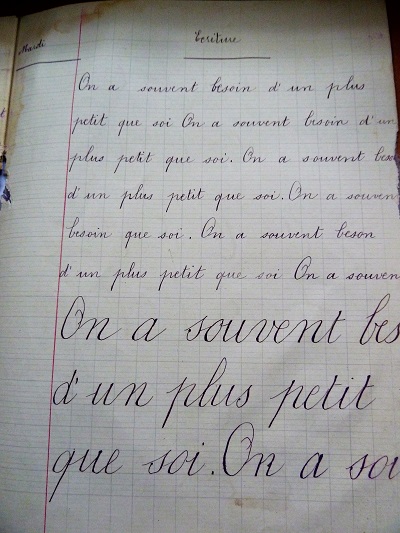 Mardi
Ecriture
On a souvent besoin d'un plus
petit que soi On a souvent besoin d'un
plus petit que soi. On a souvent beso
d'un plus petit que soi. On a souven
besoin que soi. On a souvent beson
d'un plus petit que soi On a souven
On a souvent bes
d'un plus petit
que soi. On a sou